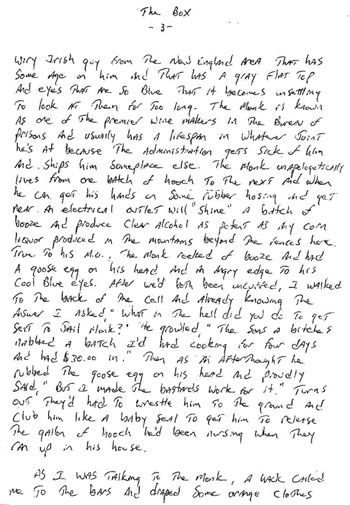 The Box
- 3 -
wiry Irish guy from the New England area that has
some age on him and that has a gray flat top
and eyes that are so blue that it becomes unsettling
to look at them for too long. The Monk is known
as one of the premier wine makers in the Bureau of
Prisons and usually has a lifespan in whatever joint
he's at because the administration gets sick of him
and ships him someplace else. The Monk unapologetically
lives from one batch of hooch to the next and when
he can get his hands on some rubber hosing and get
near an electrical outlet will "shine" a batch of
booze and produce clear alcohol as potent as any corn
liquor produced in the mountains beyond the fences here.
True to his M.O., the Monk reeked of booze and had
a goose egg on his head and an angry edge to his
cool blue eyes. After we'd both been uncuffed, I walked
to the back of the cell and already knowing the
answer I asked, "What in the hell did you do to get
sent to jail Monk?" He growled, "The sons a bitches
nabbed a batch I'd had cooking for four days
and had $30.00 in." Then as an afterthought he
rubbed the goose egg on his head and proudly
said, "But I made the bastards work for it." Turns
out they'd had to wrestle him to the ground and
club him like a baby seal to get him to release
the gallon of hooch he'd been nursing when they
ran up in his house.
As I was talking to the Monk, a hack called
me to the bars and draped some orange clothes